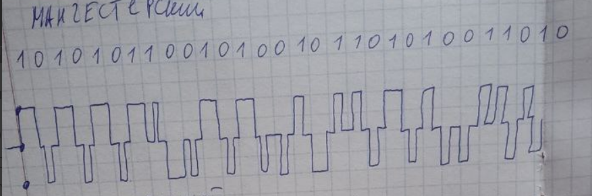 МАНЧЕСТЕРСКИЙ
1 0 1 0 1 0 1 1 0 0 1 0 1 0 0 1 0 1 1 0 1 0 1 0 0 1 1 0 1 0